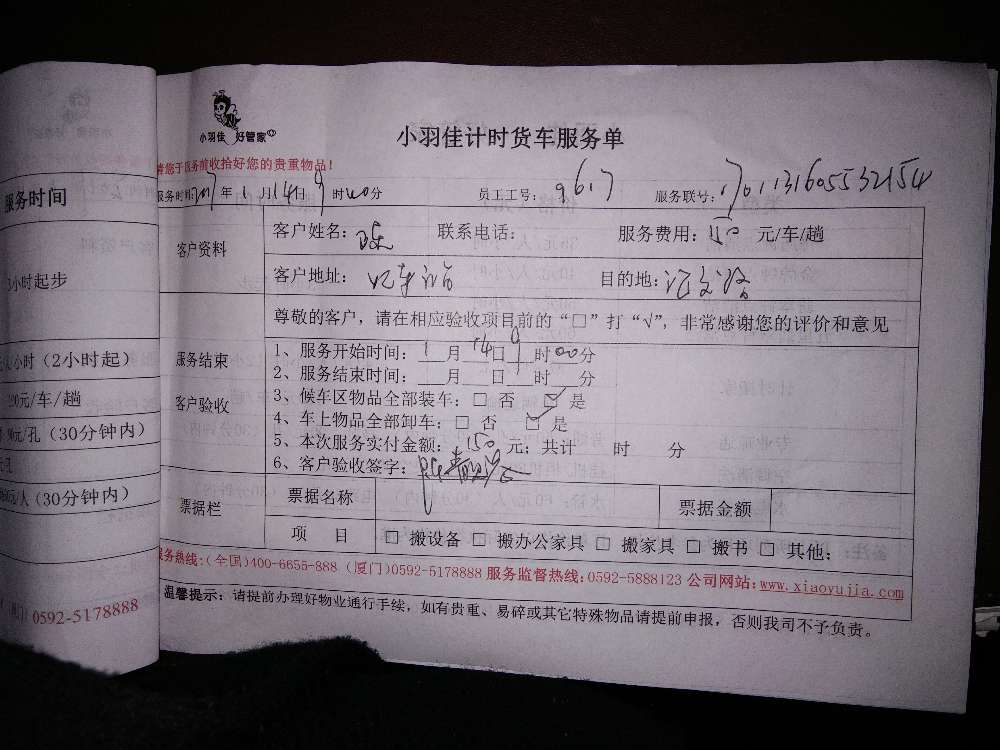 小羽佳 好管家
小羽佳计时货车服务单
请您于服务前收拾好您的贵重物品!
服务时间:2017年1月14日9时00分 员工工号:9617 服务联号:
服务时间
客户资料
客户姓名: 联系电话: 服务费用:150元/车/趟
客户地址: 目的地:
小时起步
尊敬的客户,请在相应验收项目前的“□”打“√”,非常感谢您的评价和意见
服务结束
客户验收
1、服务开始时间:1月14日9时00分
2、服务结束时间:___月___日___时___分
3、候车区物品全部装车:□ 否 □ 是
4、车上物品全部卸车:□ 否 □ 是
5、本次服务实付金额:150元;共计 时 分
6、客户验收签字:
/小时(2小时起)
元/车/趟
元/孔(30分钟内)
元/孔
元/人(30分钟内)
票据栏
票据名称 票据金额
项 目 □ 搬设备 □ 搬办公家具 □ 搬家具 □ 搬书 □ 其他:
服务热线:(全国)400-6655-888 (厦门)0592-5178888 服务监督热线:0592-5888123 公司网站:www.xiaoyujia.com
温馨提示:请提前办理好物业通行手续,如有贵重、易碎或其它特殊物品请提前申报,否则我司不予负责。
0592-5178888